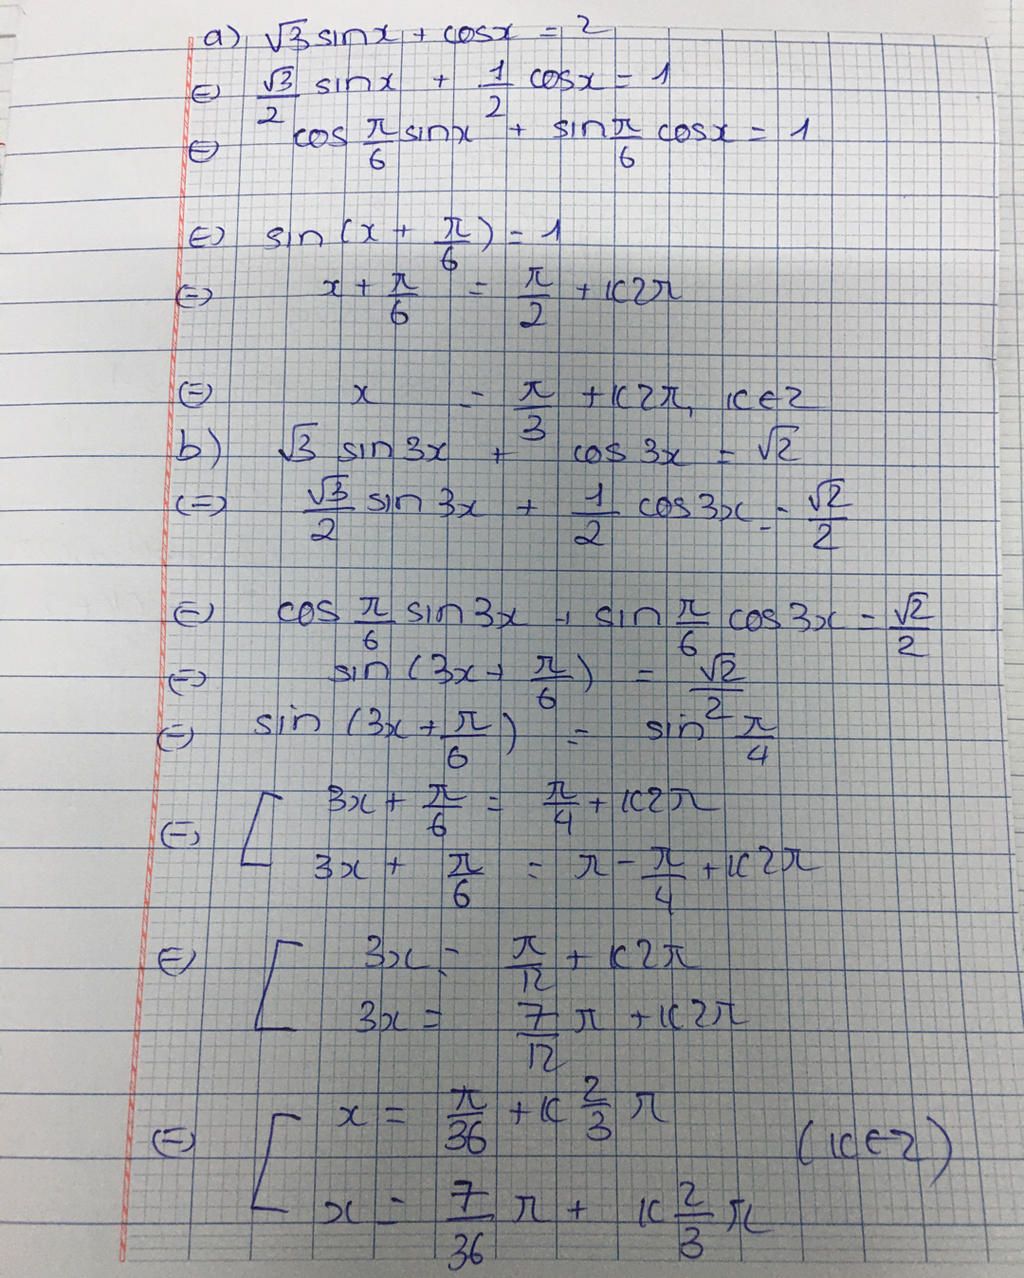 a) √3 sinx + cosx = 2
⇔ √3/2 sinx + 1/2 cosx = 1
⇔ cos π/6 sinx + sin π/6 cosx = 1
⇔ sin (x + π/6) = 1
⇔ x + π/6 = π/2 + k2π
⇔ x = π/3 + k2π, k∈Z
b) √3 sin3x + cos3x = √2
⇔ √3/2 sin3x + 1/2 cos3x = √2/2
⇔ cos π/6 sin3x + sin π/6 cos3x = √2/2
⇔ sin (3x + π/6) = √2/2
⇔ sin (3x + π/6) = sin π/4
⇔ [ 3x + π/6 = π/4 + k2π
3x + π/6 = π - π/4 + k2π
⇔ [ 3x = π/12 + k2π
3x = 7/12 π + k2π
⇔ [ x = π/36 + k 2/3 π (k∈Z)
x = 7/36 π + k 2/3 π